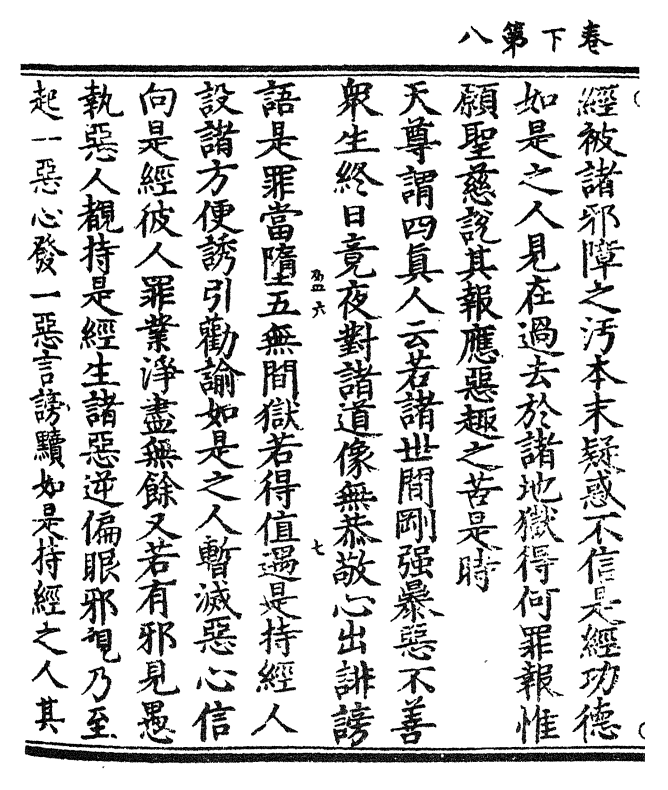 卷下第八
經被諸邪障之汚本末疑惑不信是經功德
如是之人見在過去於諸地獄得何罪報惟
願聖慈說其報應惡趣之苦是時
天尊謂四眞人云若諸世間剛强暴惡不善
衆生終日竟夜對諸道像無恭敬心出誹謗
六
七
語是罪當墮五無間獄若得值遇是持經人
設諸方便誘引勸諭如是之人暫滅惡心信
向是經彼人罪業淨盡無餘又若有邪見愚
執惡人覩持是經生諸惡逆偏眼邪視乃至
起一惡心發一惡言謗黷如是持經之人其